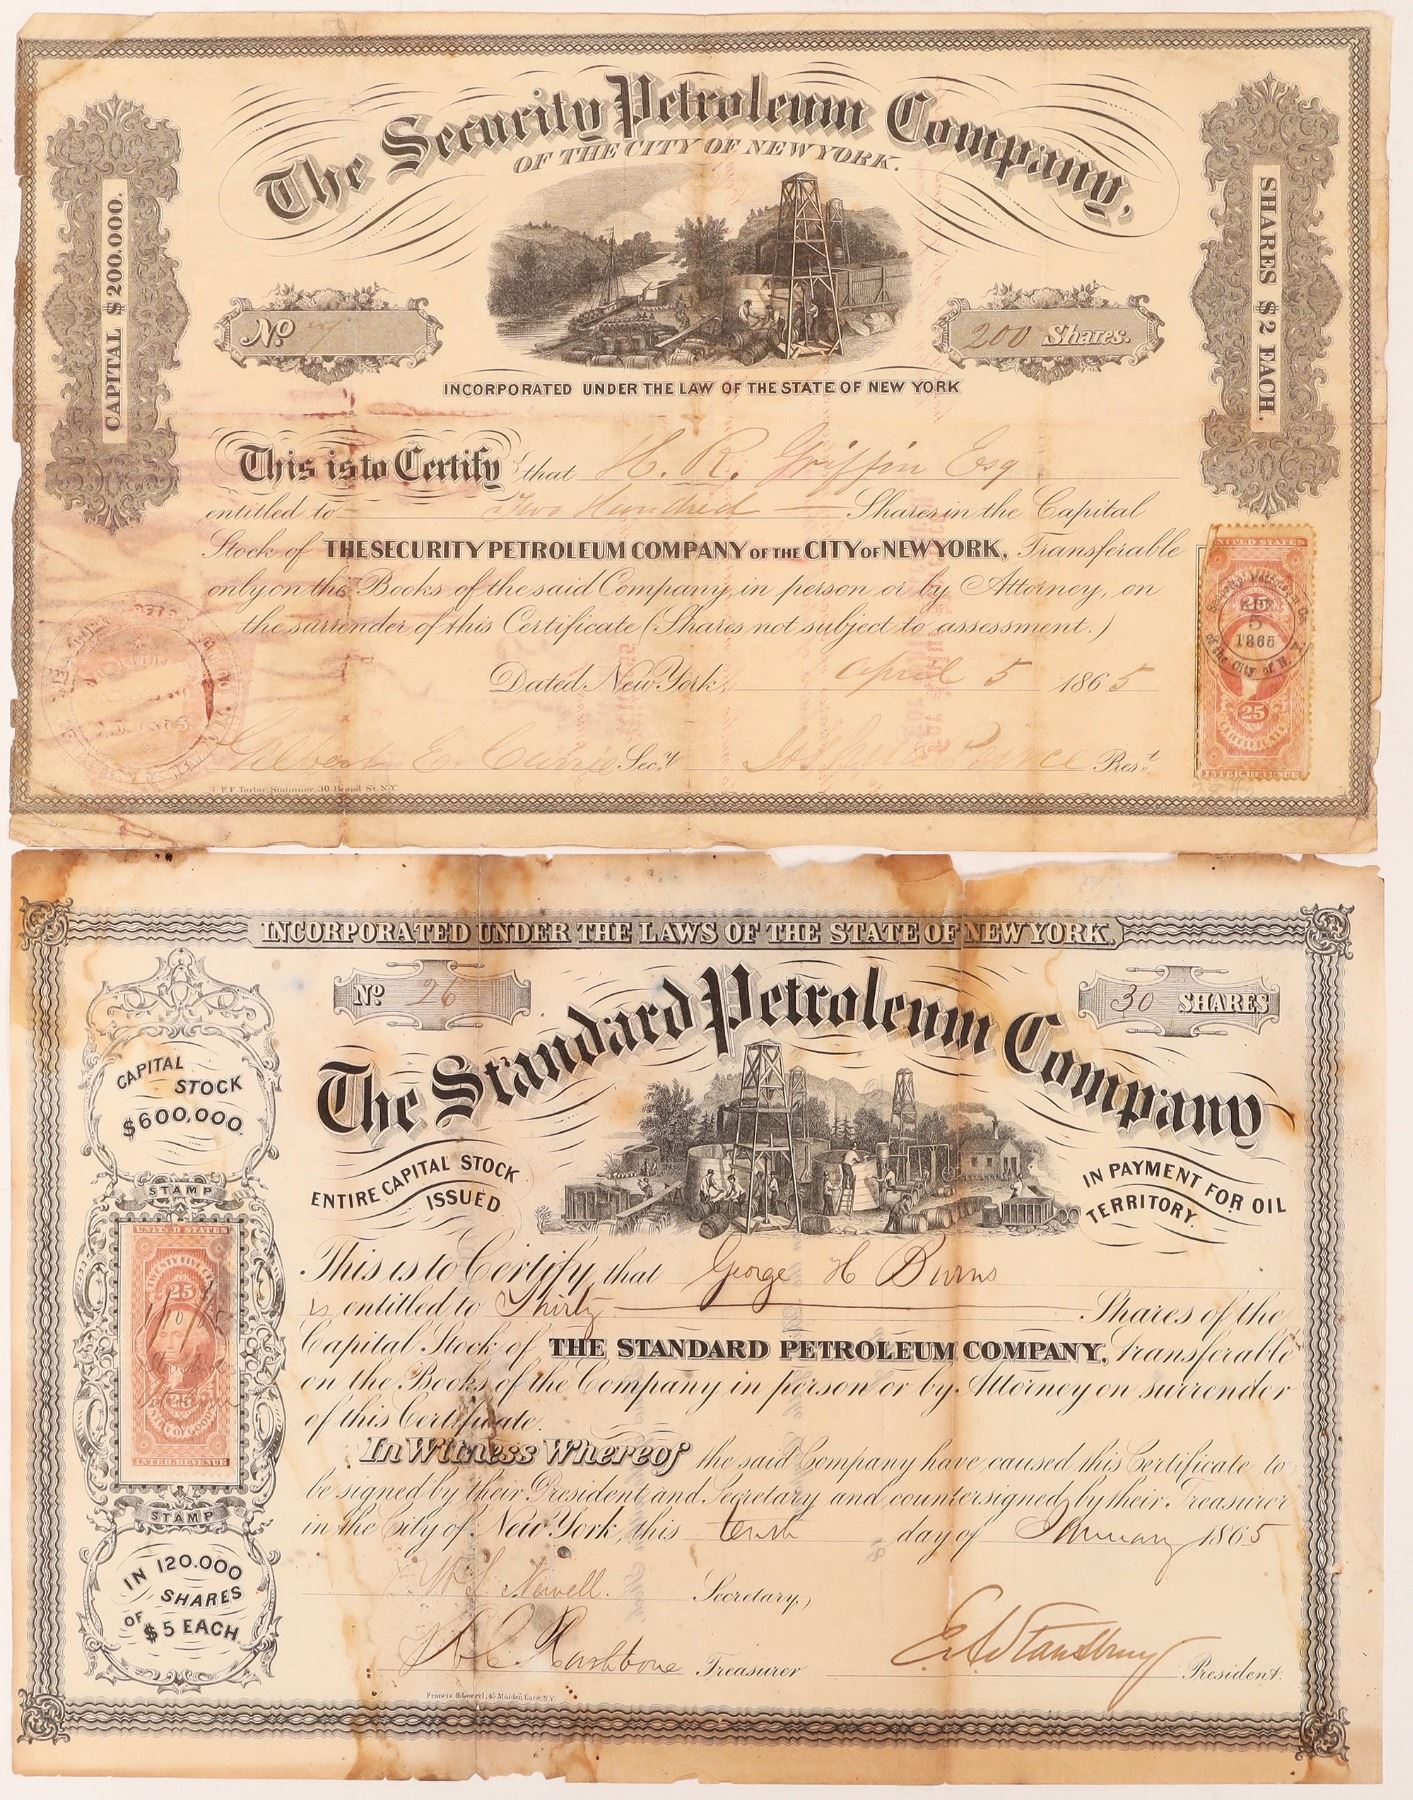 The Security Petroleum Company,
OF THE CITY OF NEW YORK.
CAPITAL $200.000.
SHARES $2 EACH.
No 7
200 Shares.
INCORPORATED UNDER THE LAW OF THE STATE OF NEW YORK
This is to Certify that H. R. Griffin Esq
entitled to Two Hundred Shares in the Capital
Stock of THE SECURITY PETROLEUM COMPANY OF THE CITY OF NEW YORK, Transferable
only on the Books of the said Company, in person or by Attorney, on
the surrender of this Certificate (Shares not subject to assessment.)
Dated New York, April 5 1865
Gilbert E. Currie Sec.y Pierce Prest
F. F. Taylor, Stationer, 30 Broad St. N.Y.
UNITED STATES
Security Petroleum Co.
5
1865
of the City of N.Y.
25
CERTIFICATE
INTER. REVENUE
INCORPORATED UNDER THE LAWS OF THE STATE OF NEW YORK.
No 26
30 SHARES
The Standard Petroleum Company
CAPITAL STOCK
$600,000.
ENTIRE CAPITAL STOCK ISSUED
IN PAYMENT FOR OIL TERRITORY.
STAMP
UNITED STATES
TWENTY FIVE
25
25
INTER. REVENUE
STAMP
IN 120.000
SHARES
OF $5 EACH
This is to Certify, that George H Burns
is entitled to Thirty Shares of the
Capital Stock of THE STANDARD PETROLEUM COMPANY, transferable
on the Books of the Company in person or by Attorney on surrender
of this Certificate.
In Witness Whereof the said Company have caused this Certificate to
be signed by their President and Secretary and countersigned by their Treasurer
in the City of New York, this tenth day of January 1865
Newell. Secretary,
Rathbone Treasurer
E. A. Stansbury President.
Francis & Loutrel, 45 Maiden Lane, N.Y.